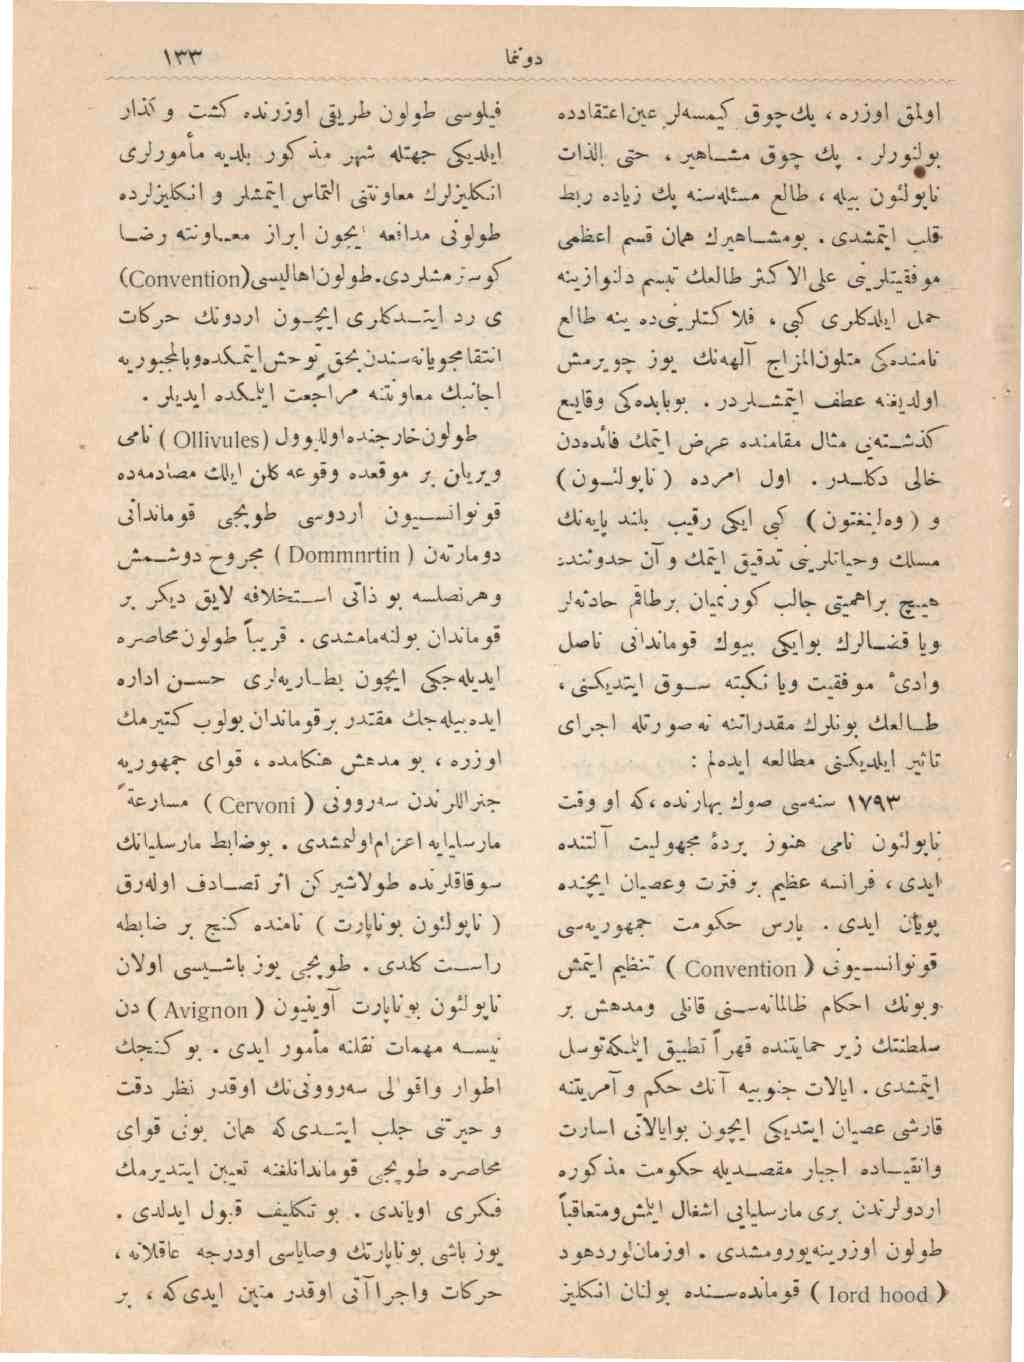 دوننما ١٣٣
اولمق اوزره ، پك چوق كیمسه‌لر عین اعتقادده
بولنورلر . پك چوق مشـاهیر ، حتی بالذات
ناپولئون بیله ، طالع مسئله‌سنه پك زیاده ربط
قلب ایتمشدی . بومشـاهیرك همان قسم اعظمی
موفقیتلرینی علی الاكثر طالعك تبسم دلنوازینه
حمل ایلدكلری كبی ، فلاكتلرینی‌ده ینه طالع
نامنده‌كی متلون‌المزاج آلهه‌نك یوز چویرمش
اولدیغنه عطف ایتمشـلردر . بوبابده‌كی وقایـع
كذشـته‌یی مثال مقامنده عرض ایتمك فائده‌دن
خالی دكلـدر . اول امرده ( ناپولئـون )
و ( وه‌لینغتون ) كبی ایكی رقیب بلند پایه‌نك
مسلك وحیاتلرینی تدقیق ایتمك و آن حدوثنده
هیـچ براهمیتی جالب كورنمیان برطاقم حادثه‌لر
ویا قضـالرك بوایكی بیوك قوماندانی ناصل
وادیٔ موفقیت ویا نكبته سـوق ایتدیكـنی ،
طـالعك بونلرك مقدراتنه نه صورتله اجرای
تاثیر ایلدیكـنی مطالعه ایده‌لم :
١٧٩٣ سنه‌سی صوك بهارنده ،كه او وقت
ناپولئون نامی هنوز پردۀ مجهولیت آلتنده
ایدی ، فرانسه عظیم بر فترت وعصیان ایچنده
پویان ایدی . پارس حكومت جمهوریه‌سی
قونوانسـیونی ( Convention ) تنظیم ایتمش
وبونك احكام ظالمانه‌سـنی قانلی ومدهش بر
سلطنتك زیر حمایتنده قهراً تطبیق ایلمكه‌توسل
ایتمشدی . ایالات جنوبیه آنك حكم و آمریتنه
قارشی عصیان ایتدیكی ایچون بوایالاتی اسارت
وانقیـاده اجبار مقصـدیله حكومت مذكوره
اردولرندن بری مارسلیایی اشغال ایلمش‌ومتعاقباً
طولون اوزرینه‌یورومشدی . اوزمان‌لوردهود
( lord hood ) قومانده‌سـنده بولنان انكلیز
فیلوسی طولون طریقی اوزرنده كشت و كذار
ایلدیكی جهتله شهر مذكور بلدیه مأمورلری
انـكلیزلرك معاونتنی التماس ایتمشلر و انكلیزلرده
طولونی مدافعه ایچون ابراز معـاونته رضـا
كوسترمشلردی. طولون‌اهالیسی(Convention)
ی رد ایتـدكلری ایچـون اردونك حركات
انتقامجویانه‌سندن بحق توحش‌ایتمكده‌وبالمجبوریه
اجانبك معاونتنه مراجعت ایلمكده ایدیلر .
طولون‌خارجنده‌اولیوول (Ollivules ) نامی
ویریلن بر موقعده وقوعه كلن ایلك مصادمه‌ده
قونوانسـیون اردوسی طوپچی قوماندانی
دومارته‌ن ( Dommnrtin ) مجروح دوشـمش
وهرنصلسه بو ذاتی اسـتخلافه لایق دیكر بر
قوماندان بولنه‌مامشدی . قریباً طولون‌محاصره
ایدیله‌جكی ایچون بطـاریه‌لری حسـن اداره
ایده‌بیله‌جك مقتدر برقوماندان بولوب كتیرمك
اوزره ، بو مدهش هنكامده ، قوای جمهوریه
جنراللرندن سه‌روونی ( Cervoni ) مسارعةً
مارسلیایه اعزام‌اولنمشدی . بوضابط مارسلیانك
سوقاقلرنده طولاشیركن اثر تصـادف اوله‌رق
( ناپولئون بوناپارت ) نامنده كنج بر ضابطه
راسـت كلدی . طوپچی یوز باشـیسی اولان
ناپولئون بوناپارت آوینیون ( Avignon ) دن
نیسـه مهمات نقلنه مأمور ایدی . بو كنجك
اطوار واقوالی سه‌روونی‌نك اوقدر نظر دقت
و حیرتنی جلب ایتـدی‌كه همان بونی قوای
محاصره طوپچی قوماندانلغنه تعیین ایتدیرمك
فكری اویاندی . بو تكلیف قبول ایدلدی .
یوز باشی بوناپارتك وصایاسی اودرجه عاقلانه ،
حركات واجراآتی اوقدر متین ایدی‌كه ، بر